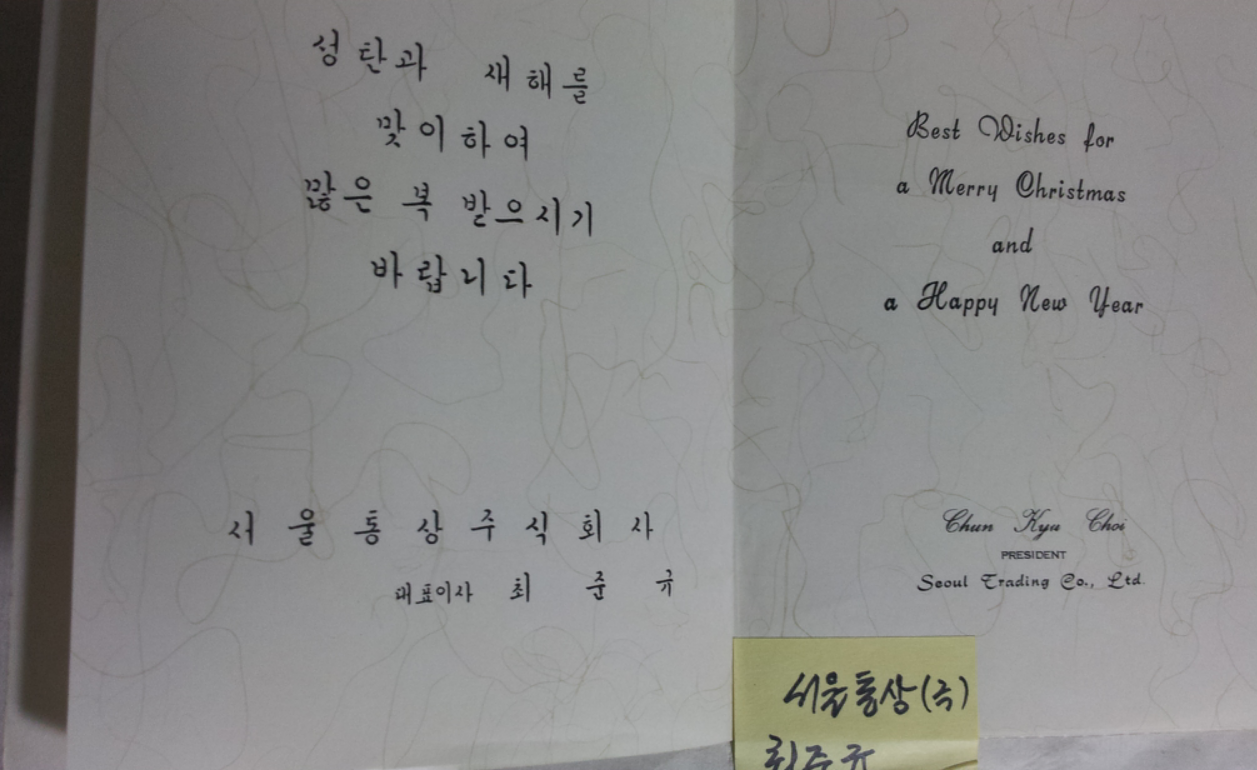 성탄과 새해를
맞이하여
많은 복 받으시기
바랍니다
서울통상주식회사
대표이사 최 준 규
Best Wishes for
a Merry Christmas
and
a Happy New Year
Chun Kyu Choi
PRESIDENT
Seoul Trading Co., Ltd.
서울통상(주)
최준규